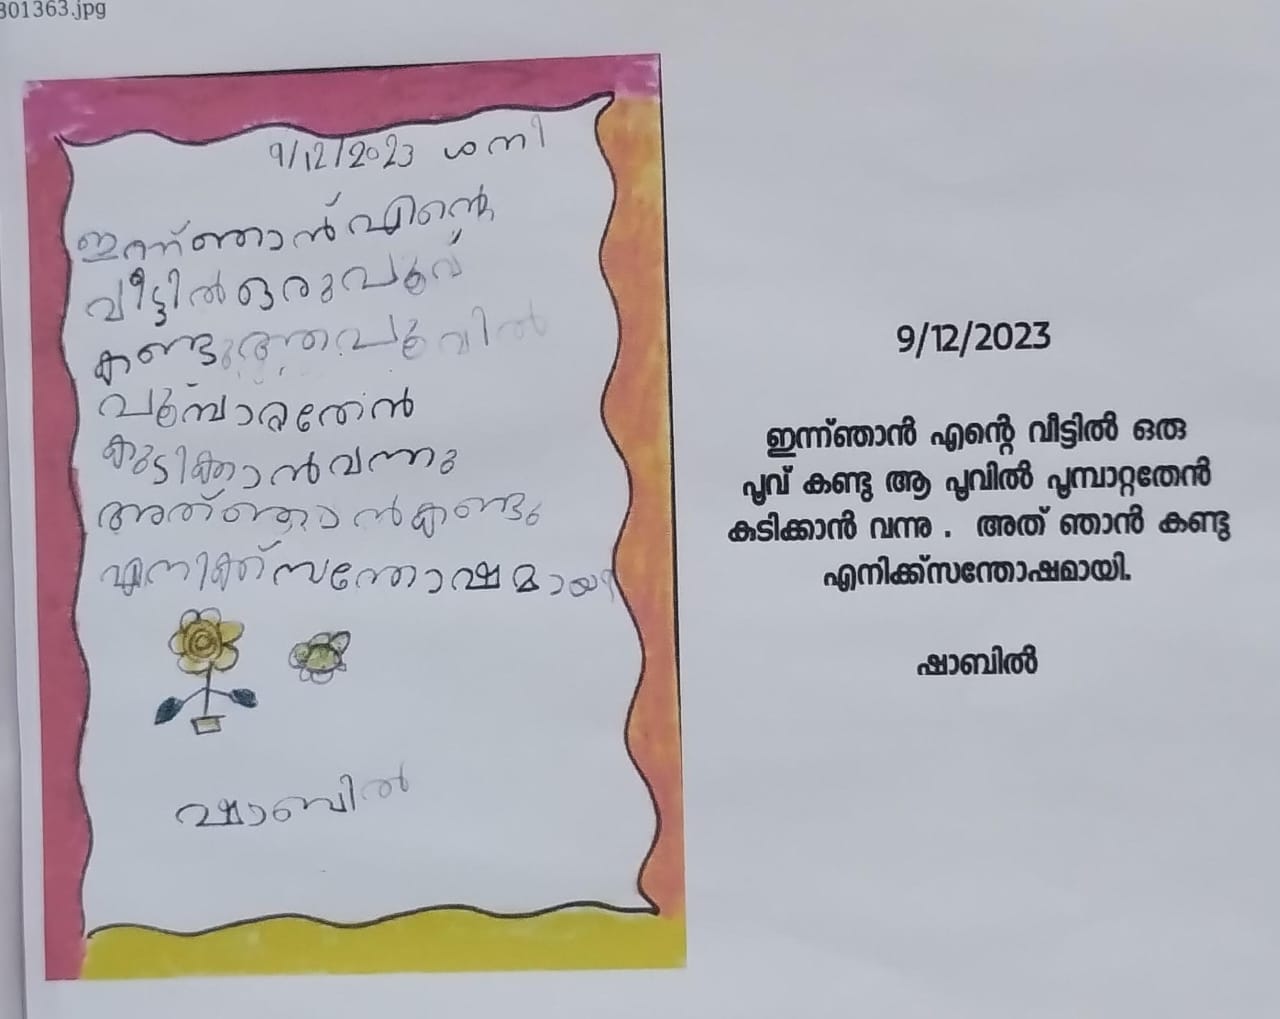 301363.jpg
9/12/2023 ശനി
ഇന്ന് ഞാൻ എൻ്റെ
വീട്ടിൽ ഒരു പൂവ്
കണ്ടു ആ പൂവിൽ
പൂമ്പാറ്റതേൻ
കുടിക്കാൻ വന്നു
അത് ഞാൻ കണ്ടു
എനിക്ക് സന്തോഷമായി
ഷാബിൽ
9/12/2023
ഇന്ന്ഞാൻ എൻ്റെ വീട്ടിൽ ഒരു
പൂവ് കണ്ടു ആ പൂവിൽ പൂമ്പാറ്റതേൻ
കുടിക്കാൻ വന്നു . അത് ഞാൻ കണ്ടു
എനിക്ക്സന്തോഷമായി.
ഷാബിൽ